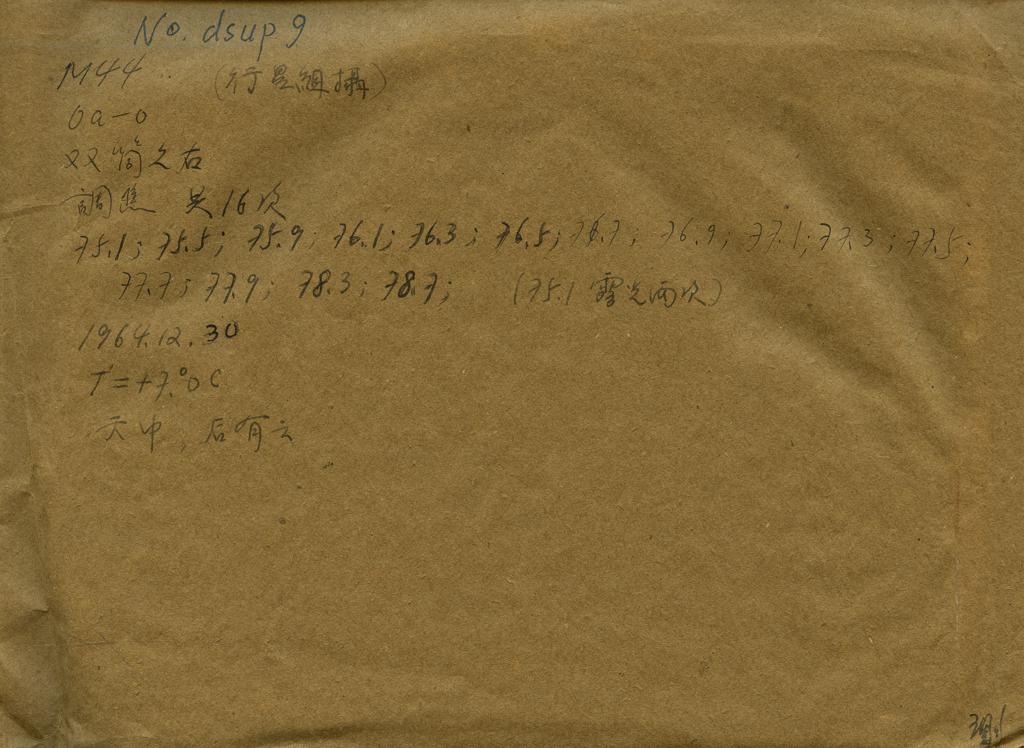 No. dsup 9
M44 (行星組攝)
0a-0
双筒之右
調焦 共16次
75.1; 75.5; 75.9; 76.1; 76.3; 76.5; 76.7; 76.9; 77.1; 77.3; 77.5;
77.7; 77.9; 78.3; 78.7; (75.1 露光兩次)
1964.12.30
T=+7.°0C
天中, 后有云